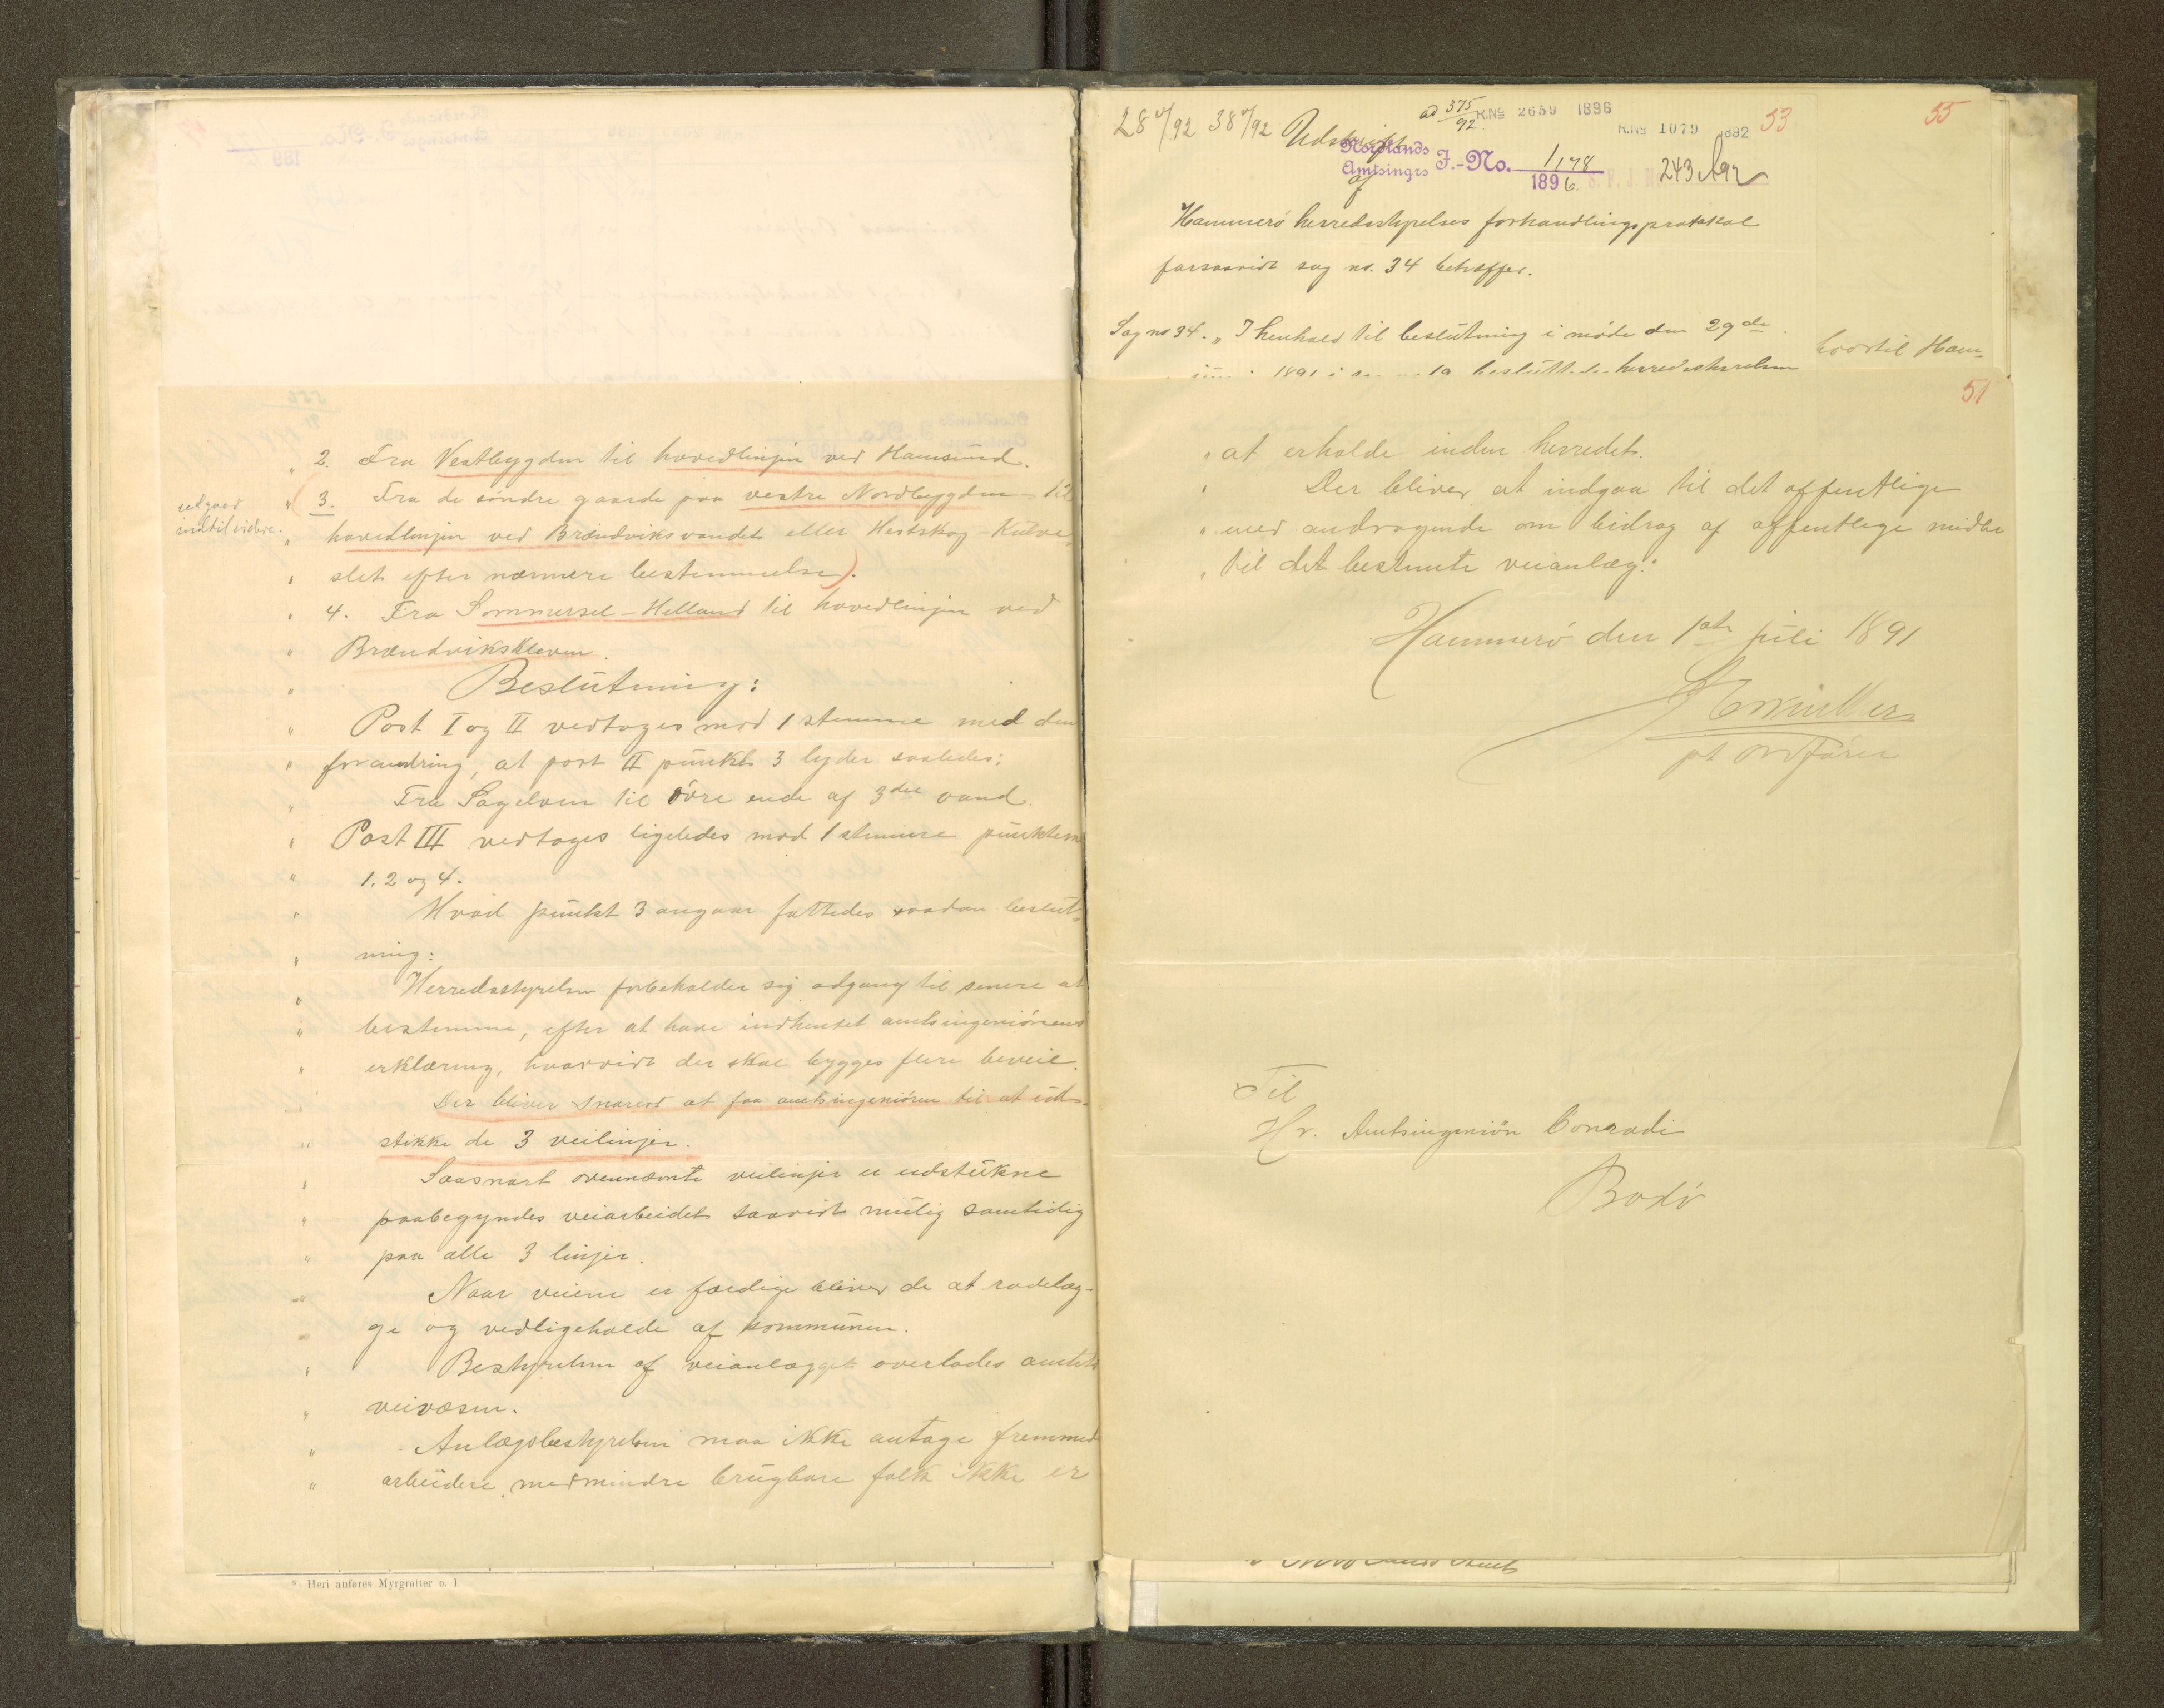 " 2. Fra Vestbygden til hovedlinjen ved Hamsund.
udgaar
indtil videre.
" 3. Fra de søndre gaarde paa vestre Nordbygden til
" hovedlinjen ved Brændviksvandet eller Hestskog-Kulve-
" slet efter nærmere bestemmelse).
" 4. Fra Sommersel-Helland til hovedlinjen ved
" Brændvikskleven.
" Beslutning:
" Post I og II vedtoges mod 1 stemme med den
" forandring, at post II punkt 3 lyder saaledes:
" Fra Sagelven til øvre ende af 3die vand.
" Post III vedtoges ligeledes mod 1 stemme punkterne
" 1. 2 og 4.
" Hvad punkt 3 angaar fattedes saadan beslut-
" ning:
" Herredsstyrelsen forbeholder sig adgang til senere at
" bestemme, efter at have indhentet amtsingeniørens
" erklæring, hvorvidt der skal bygges flere beveie.
" Der bliver snarest at faa amtsingeniøren til at ud-
" stikke de 3 veilinjer.
" Saasnart ovennævnte veilinjer er udstukne
" paabegyndes veiarbeidet saavidt mulig samtidig
" paa alle 3 linjer.
" Naar veiene er færdige bliver de at rodelæg-
" ge og vedligeholde af kommunen.
" Bestyrelsen af veianlægget overlades amtets
" veivæsen.
" Anlægsbestyrelsen maa ikke antage fremmed
" arbeidere, medmindre brugbare folk ikke er
* Heri anføres Myrgrøfter o. l.
ad 375/92. R.No 2659 1896
R.No 1079 1892 53
55
Udskrift
Nordlands
Amtsingrs J.-No. 1178
1896.
243 A92
af
Hammerø herredsstyrelses forhandlingsprotokol
forsaavidt sag no. 34 betræffer.
Sag no 34. " I henhold til beslutning i møde den 29de
juni 1891 i sag no 19 besluttede herredsstyrelsen
hvortil Ham-
51
" at erholde inden herredet.
" Der bliver at indgaa til det offentlige
" med andragende om bidrag af offentlige midler
" til det bestemte veianlæg."
Hammerø den 1ste juli 1891
pt ordfører
Til
Hr. Amtsingeniør Conradi
Bodø